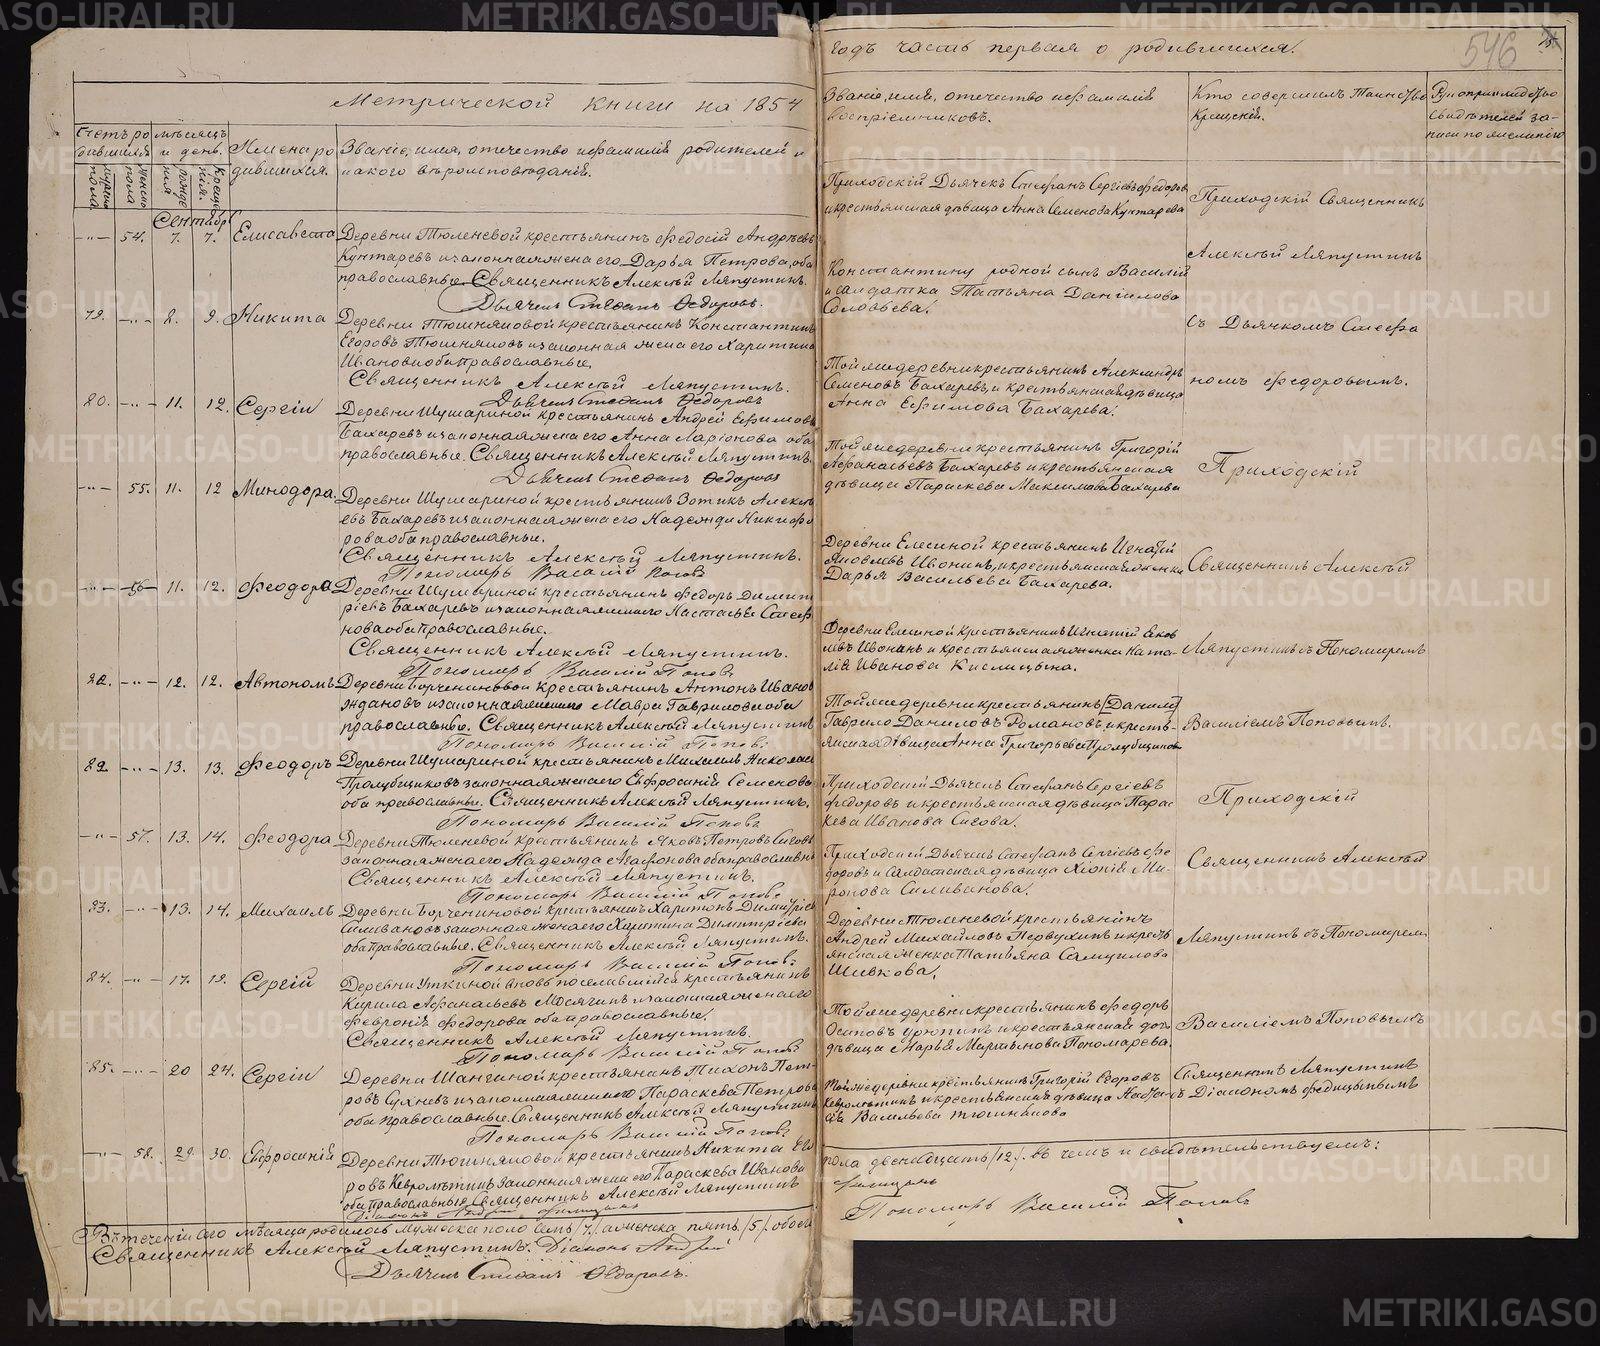 Метрической книги на 1854
годъ часть первая о родившихся.
546
Счетъ ро
дившихся
мужеска
пола.
женска
пола
мѣсяцъ
и день.
рожде
нія
креще
нія.
Имена ро
дившихся.
Званіе, имя, отечество и фамилія родителей и
какого вѣроисповѣданія.
Званіе, имя, отечество и фамилія
воспріемниковъ.
Кто совершилъ Таинство
Крещенія.
Рукоприкладство
свидѣтелей за-
писи по желанію
Сентябрь
54. 7. 7. Елисавета
Деревни Тюленевой крестьянинъ Федосій Андреевъ
Кунтаревъ и законная жена его Дарья Петрова, оба
православные. Священникъ Алексѣй Ляпустинъ.
Дьячекъ Стефанъ Федоровъ.
Приходскій Дьячекъ Стефанъ Сергіевъ Федоровъ
и крестьянская дѣвица Анна Семенова Кунтарева
Приходскій Священникъ
79. 8. 9. Никита
Деревни Тюшняковой крестьянинъ Константинъ
Егоровъ Тюшняковъ и законная жена его Харитина
Иванова оба православные.
Священникъ Алексѣй Ляпустинъ.
Дьячекъ Стефанъ Федоровъ
Константину родной сынъ Василій
и солдатка Татьяна Данилова
Соловьева.
Алексѣй Ляпустинъ
съ Дьячкомъ Стефа
80. 11. 12. Сергій
Деревни Шушариной крестьянинъ Андрей Ефимовъ
Бахаревъ и законная жена его Анна Ларіонова оба
православные. Священникъ Алексѣй Ляпустинъ.
Дьячекъ Стефанъ Федоровъ
Той же деревни крестьянинъ Александръ
Семеновъ Бахаревъ, и крестьянская дѣвица
Анна Ефимова Бахарева.
номъ Федоровымъ.
55. 11. 12 Минодора.
Деревни Шушариной крестьянинъ Зотикъ Алексѣ
евъ Бахаревъ и законная жена его Надежда Никифо
рова оба православные.
Священникъ Алексѣй Ляпустинъ.
Пономарь Василій Поповъ
Той же деревни крестьянинъ Григорій
Афанасьевъ Бахаревъ и крестьянская
дѣвица Параскева Максимова Бахарева
Приходскій
56 11. 12. Феодора
Деревни Шушариной крестьянинъ Федоръ Димит
ріевъ Бахаревъ и законная жена его Настасья Стефа
нова оба православные.
Священникъ Алексѣй Ляпустинъ.
Пономарь Василій Поповъ
Деревни Елесиной крестьянинъ Игнатій
Яковлевъ Ивонинъ, и крестьянская женка
Дарья Васильева Бахарева.
Священникъ Алексѣй
12. 12. Автономъ
православные. Священникъ Алексѣй Ляпустинъ
Пономарь Василій Поповъ.
Деревни Елесиной крестьянинъ Игнатій Яков
левъ Ивонинъ и крестьянская женка Ната-
лія Иванова Кислицына.
Ляпустинъ съ Пономаремъ
82. 13. 13. Феодоръ
Деревни Шушариной крестьянинъ Михаилъ Николаевъ
законная жена его Евфросинія Семенова
оба православные. Священникъ Алексѣй Ляпустинъ.
Пономарь Василій Поповъ
Той же деревни крестьянинъ [Данило]
Гаврило Даниловъ Романовъ, и кресть-
янская дѣвица Анна Григорьева
Василіемъ Поповымъ.
57. 13. 14. Феодора
Деревни Тюленевой крестьянинъ Яковъ Петровъ Сысовъ
законная жена его Надежда Агафонова оба православные
Священникъ Алексѣй Ляпустинъ.
Пономарь Василій Поповъ.
Приходскій Дьячекъ Стефанъ Сергіевъ
Федоровъ и крестьянская дѣвица Парас
кева Иванова Сысова.
Приходскій
83. 13. 14. Михаилъ
Деревни Борчениновой крестьянинъ Харитонъ Димитріевъ
Силивановъ законная жена его Харитина Димитріева
оба православные. Священникъ Алексѣй Ляпустинъ.
Пономарь Василій Поповъ.
Приходскій Дьячекъ Стефанъ Сергіевъ Фе
доровъ и Солдатская дѣвица Хіонія Ми-
ронова Силиванова.
Священникъ Алексѣй
84. 17. 19. Сергій
Деревни Уткиной вновь поселившійся крестьянинъ
Кирила Афанасьевъ Мосягинъ и законная жена его
Февронія Федорова оба православные.
Священникъ Алексѣй Ляпустинъ.
Пономарь Василій Поповъ
Деревни Тюленевой крестьянинъ
Андрей Михайловъ Первухинъ и кресть
янская женка Татьяна Самуилова
Шивкова.
Ляпустинъ съ Пономаремъ
85. 20 24. Сергій
Деревни Шангиной крестьянинъ Тихонъ Пет-
ровъ Сухневъ и законная жена его Параскева Петрова
оба православные. Священникъ Алексѣй Ляпустинъ
Пономарь Василій Поповъ.
Той же деревни крестьянинъ Федоръ
Осиповъ Урюпинъ и крестьянская доч
дѣвица Марья Мартынова Пономарева.
Василіемъ Поповымъ
58. 29. 30. Евфросинія
Деревни Тюшняковой крестьянинъ Никита Его
ровъ Кевролетинъ законная жена его Параскева Иванова
оба православные Священникъ Алексѣй Ляпустинъ
Той же деревни крестьянинъ Григорій Егоровъ
Кевролетинъ и крестьянская дѣвица Наста-
сья Васильева Тюшнякова
Священникъ Ляпустинъ
съ Діакономъ
Въ теченіи сего мѣсяца родилось мужеска пола семь /7/. а женска пять /5/. обоего
пола двенадцать /12/. въ чемъ и свидѣтельствуемъ:
Священникъ Алексѣй Ляпустинъ. Діаконъ Андрей
Пономарь Василій Поповъ
Дьячекъ Стефанъ Федоровъ.
METRIKI.GASO-URAL.RU